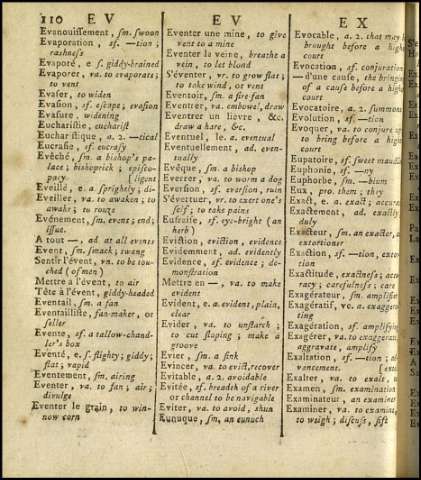 110 E V
E V
E X
Evanouissement, sm. swoon
Evaporation, sf. —tion;
rashness
Evaporé, e s. giddy-brained
Evaporer, va. to evaporate;
to vent
Evaser, to widen
Evasion, sf. escape, evasion
Evasure, widening
Eucharistie, eucharist
Eucharistique, a. 2. —tical
Eucrasie, sf. eucrasy
Evêché, sm. a bishop's pa-
lace; bishoprick; episco-
pacy [ligent
Eveillé, e a. sprightly; di-
Eveiller, va. to awaken; to
awake; to rouze
Evénement, sm. event; end;
issue.
A tout —, ad. at all events
Event, sm. smack; twang
Sentir l'évent, va. to be tou-
ched (of men)
Mettre à l'évent, to air
Tête à l'évent, giddy-headed
Eventail, sm. a fan
Eventailliste, fan-maker, or
seller
Evente, sf. a tallow-chand-
ler's box
Eventé, e s. flighty; giddy;
flat; vapid
Eventement, sm. airing
Eventer, va. to fan; air;
divulge
Eventer le grain, to win-
now corn
Eventer une mine, to give
vent to a mine
Eventer la veine, breathe a
vein, to let blood
S'éventer, vr. to grow flat;
to take wind, or vent
Eventoir, sm. a fire-fan
Eventrer, va. embowel, draw
Eventrer un lievre, &c.
draw a hare, &c.
Eventuel, le. a. eventual
Eventuellement, ad. even-
tually
Evêque, sm. a bishop
Everrer, va. to worm a dog
Eversion, sf. eversion, ruin
S'évertuer, vr. to exert one's
self; to take pains
Eufraise, sf. eye-bright (an
herb)
Eviction, eviction, evidence
Evidemment, ad. evidently
Evidence, sf. evidence; de-
monstration
Mettre en —, va. to make
evident
Evident, e. a. evident, plain,
clear
Evider, va. to unstarch;
to cut sloping; make a
groove
Evier, sm. a sink
Evincer, va. to evict, recover
Evitable, a. 2. avoidable
Evitée, sf. breadth of a river
or channel to be navigable
Eviter, va. to avoid, shun
Eunuque, sm. an eunuch
Evocable, a. 2. that may b
brought before a high
court
Evocation, sf. conjuration
—d'une cause, the bringin
of a cause before a high
court
Evocatoire, a. 2. summons
Evolution, sf. —tion
Evoquer, va. to conjure up
to bring before a high
court
Eupatoire, sf. sweet maudlin
Euphonie, sf. —ny
Euphorbe, sm. —bium
Eux, pro. them; they
Exact, e. a. exact; accura
Exactement, ad. exactly
duly
Exacteur, sm. an exacter, a
extortioner
Exaction, sf. —tion, extor
tion
Exactitude, exactness; accu
racy; carefulness; care
Exagérateur, sm. amplifier
Exagératif, vc. a. exaggera
ting
Exagération, sf. amplifying
Exagérer, va. to exaggerat
aggravate, amplify
Exaltation, sf. —tion; ad
vancement.
Exalter, va. to exalt,
Examen, sm. examination
Examinateur, an examiner
Examiner, va. to examine,
to weigh; discuss, sift